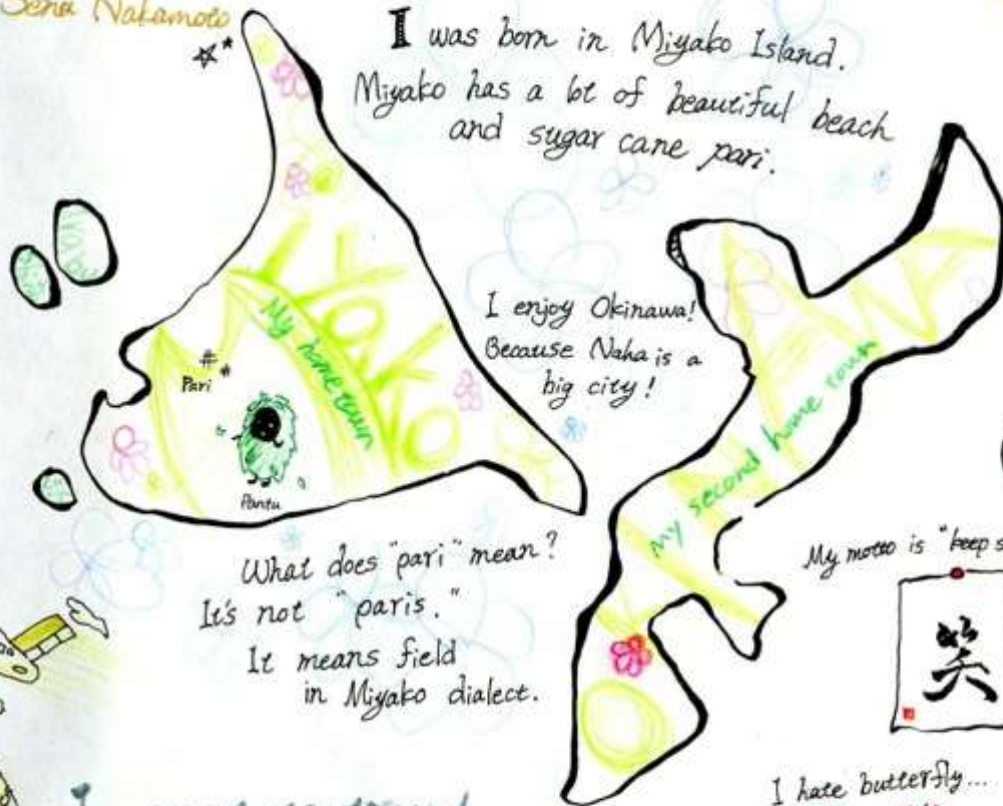 Sena Nakamoto
I was born in Miyako Island.
Miyako has a lot of beautiful beach
and sugar cane pari.
MIYAKO
My home town
Pari
Pantu
I enjoy Okinawa!
Because Naha is a
big city!
my second home town
What does "pari" mean?
It's not "paris."
It means field
in Miyako dialect.
My motto is "keep s
笑
I hate butterfly...